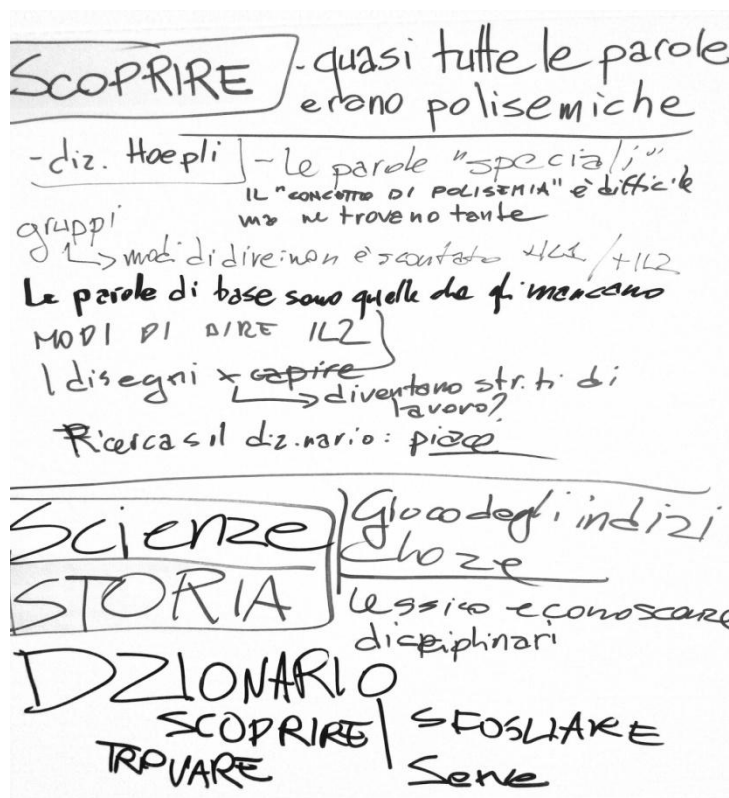 SCOPRIRE
- quasi tutte le parole
erano polisemiche
- diz. Hoepli
- Le parole "speciali"
IL "CONCETTO DI POLISEMIA" è difficile
ma ne trovano tante
gruppi
modi di dire: non è scontato +IL1 / +IL2
Le parole di base sono quelle che gli mancano
MODI DI DIRE IL2
I disegni x capire
diventano str.ti di
lavoro?
Ricerca sul diz.nario: piace
Scienze
STORIA
Gioco degli indizi
cloze
Lessico e conoscenze
disciplinari
DZIONARIO
SCOPRIRE
TROVARE
SFOGLIARE
Serve